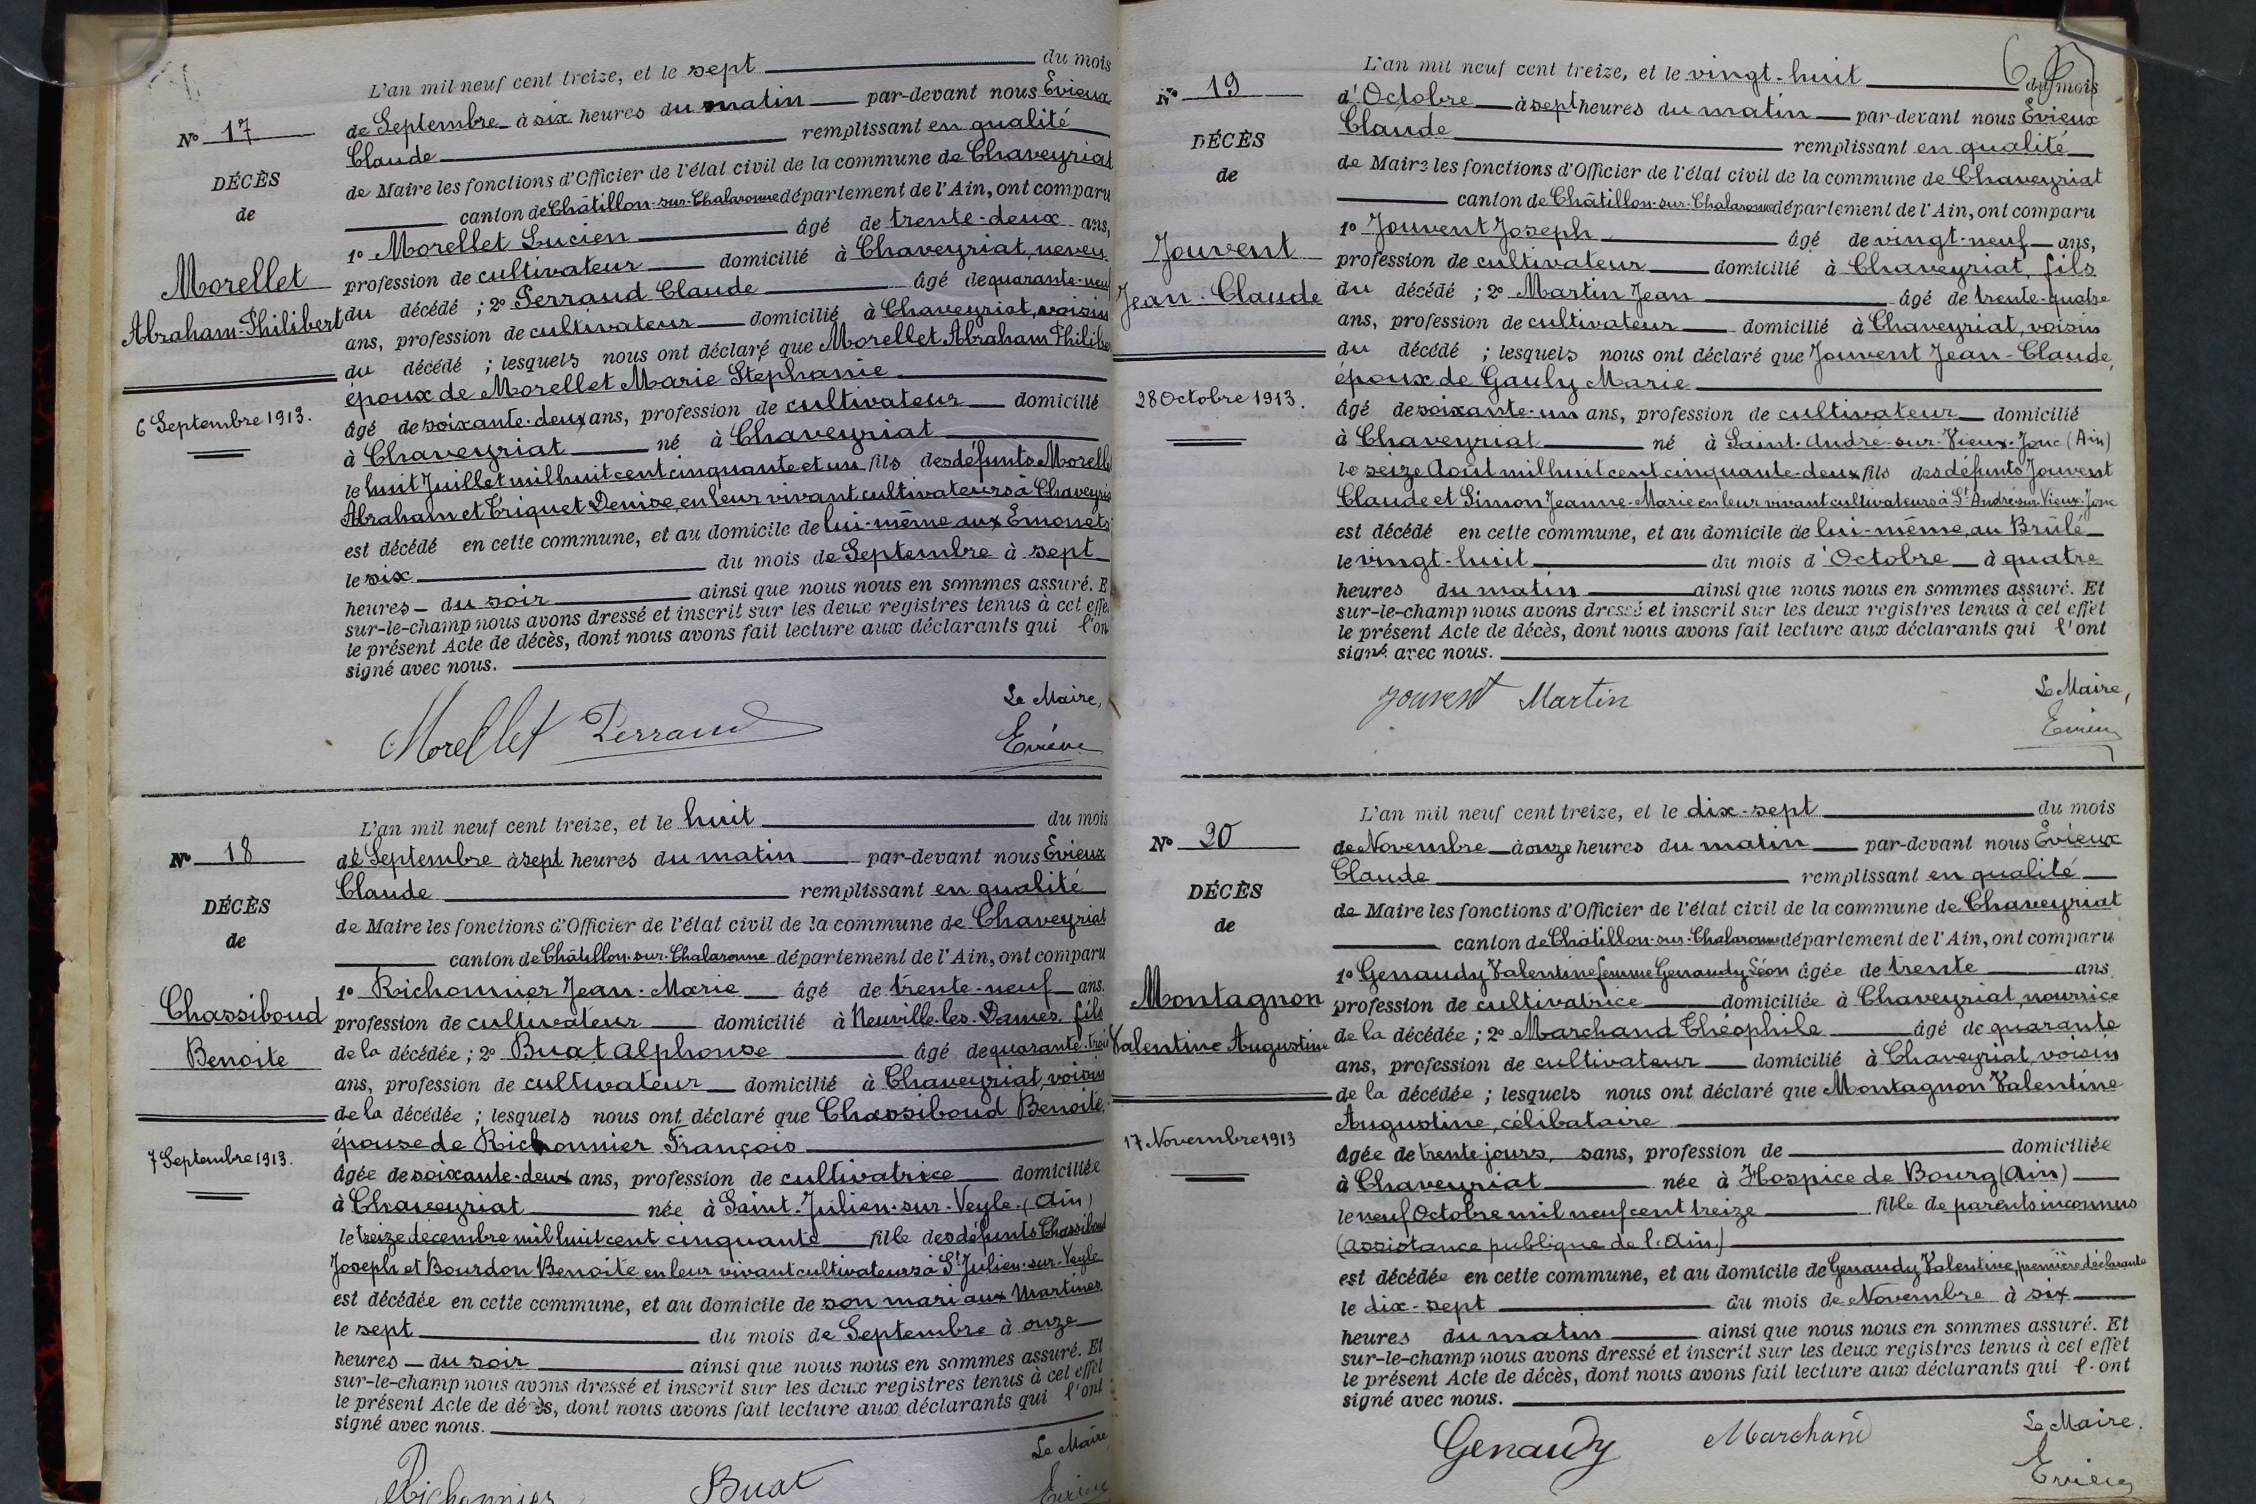 L'an mil neuf cent treize, et le sept du mois
Nº 17
de Septembre à six heures du matin par-devant nous Evieux
Claude remplissant en qualité
DÉCÈS
de Maire les fonctions d'Officier de l'état civil de la commune de Chaveyriat
de
canton de Châtillon-sur-Chalaronne département de l'Ain, ont comparu
1º Morellet Lucien âgé de trente-deux ans,
Morellet
profession de cultivateur domicilié à Chaveyriat, neveu
Abraham-Philibert
du décédé ; 2º Perraud Claude âgé de quarante-neuf
ans, profession de cultivateur domicilié à Chaveyriat, voisin
du décédé ; lesquels nous ont déclaré que Morellet Abraham Philibe
époux de Morellet Marie Stephanie
6 Septembre 1913.
âgé de soixante-deux ans, profession de cultivateur domicilié
à Chaveyriat né à Chaveyriat
le huit Juillet mil huit cent cinquante et un fils des défunts Morell
Abraham et Triquet Denise en leur vivant cultivateurs à Chaveyria
est décédé en cette commune, et au domicile de lui-même aux Emonets
le six du mois de Septembre à sept
heures du soir ainsi que nous nous en sommes assuré. E
sur-le-champ nous avons dressé et inscrit sur les deux registres tenus à cet effe
le présent Acte de décès, dont nous avons fait lecture aux déclarants qui l'on
signé avec nous.
Le Maire,
Morellet Perraud Evieux
L'an mil neuf cent treize, et le huit du mois
Nº 18
de Septembre à sept heures du matin par-devant nous Evieux
Claude remplissant en qualité
DÉCÈS
de Maire les fonctions d'Officier de l'état civil de la commune de Chaveyriat
de
canton de Châtillon-sur-Chalaronne département de l'Ain, ont comparu
1º Richonnier Jean-Marie âgé de trente-neuf ans.
Chassiboud
profession de cultivateur domicilié à Neuville-les-Dames, fils
Benoite
de la décédée ; 2º Buat Alphonse âgé de quarante-trois
ans, profession de cultivateur domicilié à Chaveyriat, voisin
de la décédée ; lesquels nous ont déclaré que Chassiboud Benoite,
épouse de Richonnier François
7 Septembre 1913.
âgée de soixante-deux ans, profession de cultivatrice domiciliée
à Chaveyriat née à Saint-Julien-sur-Veyle (Ain)
le treize décembre mil huit cent cinquante fille des défunts Chassiboud
Joseph et Bourdon Benoite en leur vivant cultivateurs à St Julien-sur-Veyle
est décédée en cette commune, et au domicile de son mari aux Martines
le sept du mois de Septembre à onze
heures du soir ainsi que nous nous en sommes assuré. Et
sur-le-champ nous avons dressé et inscrit sur les deux registres tenus à cet effet
le présent Acte de décès, dont nous avons fait lecture aux déclarants qui l'ont
signé avec nous.
Le Maire
Richonnier Buat Evieux
L'an mil neuf cent treize, et le vingt-huit du mois
Nº 19
d'Octobre à sept heures du matin par-devant nous Evieux
Claude remplissant en qualité
DÉCÈS
de Maire les fonctions d'Officier de l'état civil de la commune de Chaveyriat
de
canton de Châtillon-sur-Chalaronne département de l'Ain, ont comparu
1º Jouvent Joseph âgé de vingt-neuf ans,
Jouvent
profession de cultivateur domicilié à Chaveyriat, fils
Jean-Claude
du décédé ; 2º Martin Jean âgé de trente-quatre
ans, profession de cultivateur domicilié à Chaveyriat, voisin
du décédé ; lesquels nous ont déclaré que Jouvent Jean-Claude,
époux de Gauly Marie
28 Octobre 1913.
âgé de soixante-un ans, profession de cultivateur domicilié
à Chaveyriat né à Saint-André-sur-Vieux-Jonc (Ain)
le seize Août mil huit cent cinquante-deux fils des défunts Jouvent
Claude et Simon Jeanne-Marie en leur vivant cultivateurs à St André-sur-Vieux-Jonc
est décédé en cette commune, et au domicile de lui-même, au Brûlé
le vingt-huit du mois d'Octobre à quatre
heures du matin ainsi que nous nous en sommes assuré. Et
sur-le-champ nous avons dressé et inscrit sur les deux registres tenus à cet effet
le présent Acte de décès, dont nous avons fait lecture aux déclarants qui l'ont
signé avec nous.
Le Maire,
Jouvent Martin Evieux
L'an mil neuf cent treize, et le dix-sept du mois
Nº 20
de Novembre à onze heures du matin par-devant nous Evieux
Claude remplissant en qualité
DÉCÈS
de Maire les fonctions d'Officier de l'état civil de la commune de Chaveyriat
de
canton de Châtillon-sur-Chalaronne département de l'Ain, ont comparu
1º Genaudy Valentine femme Genaudy Léon âgée de trente ans
Montagnon
profession de cultivatrice domiciliée à Chaveyriat, nourrice
Valentine Augustine
de la décédée ; 2º Marchand Théophile âgé de quarante
ans, profession de cultivateur domicilié à Chaveyriat, voisin
de la décédée ; lesquels nous ont déclaré que Montagnon Valentine
Augustine, célibataire
17 Novembre 1913
âgée de trente jours, sans, profession de domiciliée
à Chaveyriat née à Hospice de Bourg (Ain)
le neuf Octobre mil neuf cent treize fille de parents inconnus
(assistance publique de l'Ain)
est décédée en cette commune, et au domicile de Genaudy Valentine, première déclarante
le dix-sept du mois de Novembre à six
heures du matin ainsi que nous nous en sommes assuré. Et
sur-le-champ nous avons dressé et inscrit sur les deux registres tenus à cet effet
le présent Acte de décès, dont nous avons fait lecture aux déclarants qui l'ont
signé avec nous.
Le Maire.
Genaudy Marchand Evieux